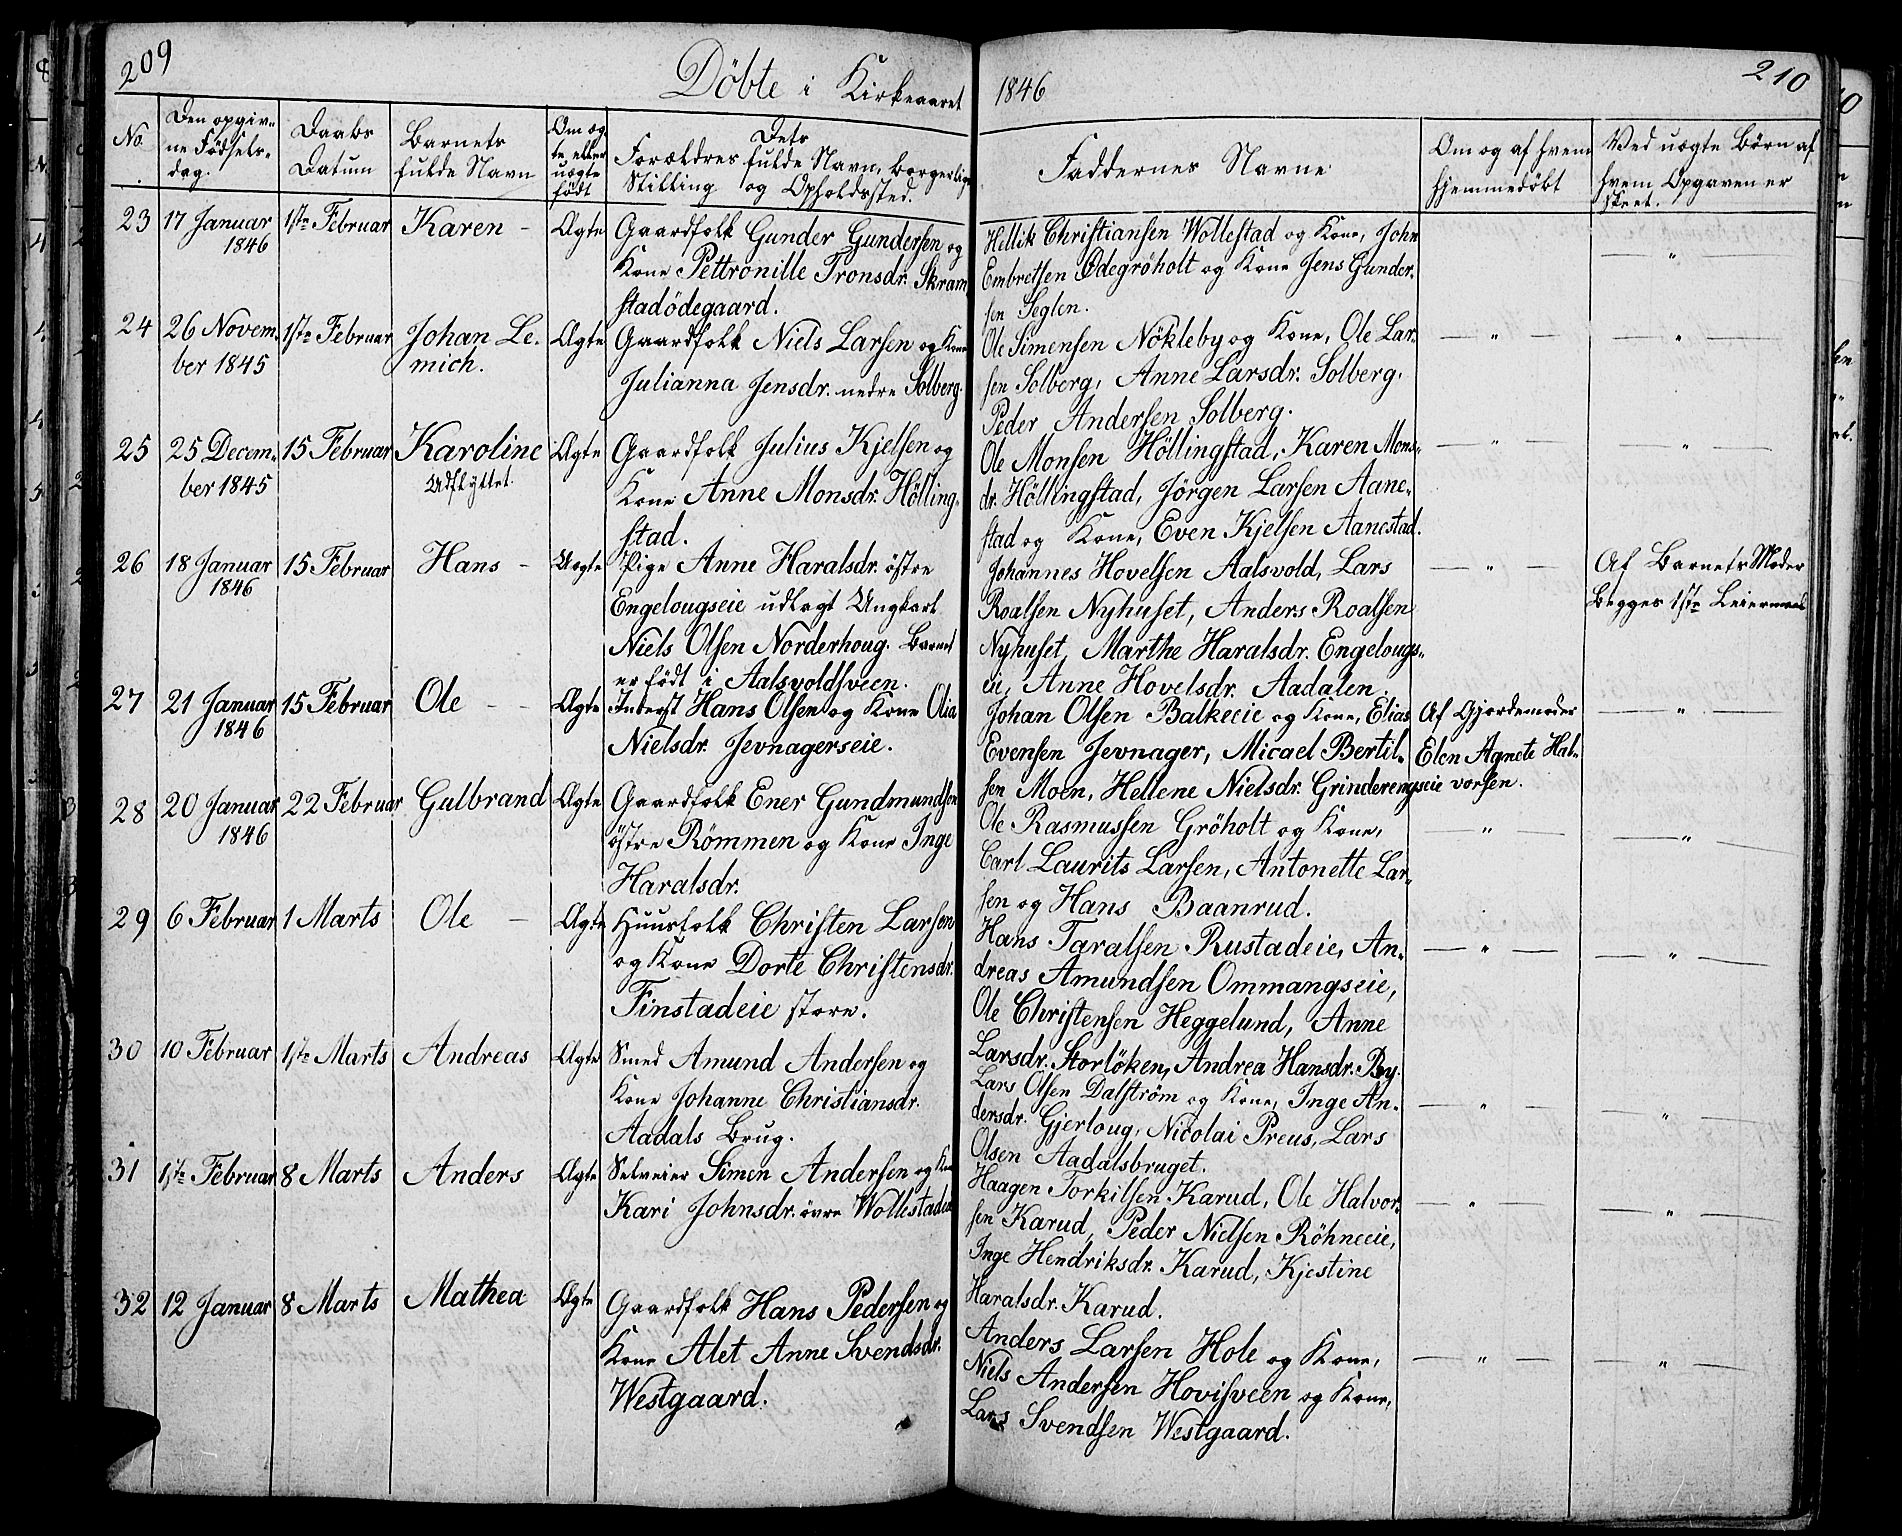 209
Döbte i Kirkeaaret
1846
210
No.
Den opgiv-
ne Födsels-
dag.
Daabs
Datum
Barnets
fulde Navn
Om æg-
te eller
uægte
födt
Dets
Forældres fulde Navn, borgerlige
Stilling og Opholdssted.
Faddernes Navne
Om og af hvem
hjemmedöbt
Ved uægte Börn af
hvem Opgaven er
skeet.
23 17 Januar 1ste Februar Karen - Ægte Gaardfolk Gunder Gundersen og
1846 Kone Pettronille Tronsdr. Skram
stadödegaard.
Hellik Christiansen Wollestad og Kone, John
Embretsen Ödegröholt og Kone Jens Gunder-
sen Seglen.
— " —
24 26 Novem- 1ste Februar Johan Le- Ægte Gaardfolk Niels Larsen og Kone
ber 1845 mich. Julianna Jensdr. nedre Solberg.
Ole Simensen Nökleby og Kone, Ole Lar-
sen Solberg, Anne Larsdr. Solberg.
Peder Andersen Solberg.
— " — — " —
25 25 Decem- 15 Februar Karoline Ægte Gaardfolk Julius Kjelsen og
ber 1845 Udflyttet. Kone Anne Monsdr. Hölling-
stad.
Ole Monsen Höllingstad, Karen Mons-
dr. Höllingstad, Jörgen Larsen Aane-
stad og Kone, Even Kjelsen Aanestad.
— " — — " —
26 18 Januar 15 Februar Hans - Uægte Pige Anne Haralsdr. östre
1846 Engelougseie udlagt Ungkarl
Niels Olsen Norderhoug. Barnet
er födt i Aalsvoldsveen.
Johannes Hovelsen Aalsvold, Lars
Roalsen Nyhuset, Anders Roalsen
Nyhuset, Marthe Haralsdr. Engelougs-
eie, Anne Hovelsdr. Aadalen.
— " —
Af Barnets Moder
Begges 1ste Leiermaal
27 21 Januar 15 Februar Ole - - Ægte Inderst Hans Olsen og Kone Olia
1846 Nielsdr. Jevnagerseie.
Johan Olsen Balkeeie og Kone, Elias
Evensen Jevnager, Micael Bertil-
sen Moen, Hellene Nielsdr. Grinderengseie
Af Gjordemoder
Elen Agnete Hal-
vorsen.
— " —
28 20 Januar 22 Februar Gulbrand Ægte Gaardfolk Ener Gundmundsen
1846 östre Römmen og Kone Inge
Haralsdr.
Ole Rasmussen Gröholt og Kone,
Carl Laurits Larsen, Antonette Lar-
sen og Hans Baanrud.
— " — — " —
29 6 Februar 1 Marts Ole - Ægte Huusfolk Christen Larsen
og Kone Dorte Christensdr.
Finstadeie store.
Hans Taralsen Rustadeie, An-
dreas Amundsen Ommangseie,
Ole Christensen Heggelund, Anne
Larsdr. Storlöken, Andrea Hansdr. By.
— " — — " —
30 10 Februar 1ste Marts Andreas Ægte Smed Amund Andersen og
Kone Johanne Christiansdr.
Aadals Brug.
Lars Olsen Dalström og Kone, Inge An-
dersdr. Gjerloug, Nicolai Preus, Lars
Olsen Aadalsbruget.
— " — — " —
31 1ste Februar 8 Marts Anders Ægte Selveier Simen Andersen og Kone
Kari Johnsdr. övre Wollestadeie
Haagen Torkilsen Karud, Ole Halvor-
sen Karud, Peder Nielsen Röhneeie,
Inge Hendriksdr. Karud, Kjestine
Haralsdr. Karud.
— " — — " —
32 12 Januar 8 Marts Mathea Ægte Gaardfolk Hans Pedersen og
Kone Alet Anne Svendsdr.
Westgaard.
Anders Larsen Hole og Kone,
Niels Andersen Hovisveen og Kone,
Lars Svendsen Westgaard.
— " — — " —